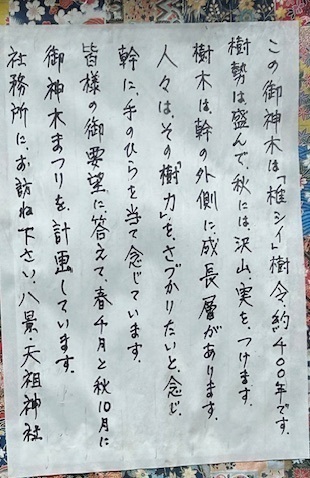 この御神木は「椎シイ」樹令、約400年です。
樹勢は盛んで、秋には、沢山、実を、つけます。
樹木は、幹の外側に、成長層があります。
人々は、その「樹力」を、さづかりたいと、念じ、
幹に、手のひらを当て念じています。
皆様の御要望に答えて、春4月と秋10月に
御神木まつりを、計画しています。
社務所に、お訪ね下さい、八景・天祖神社